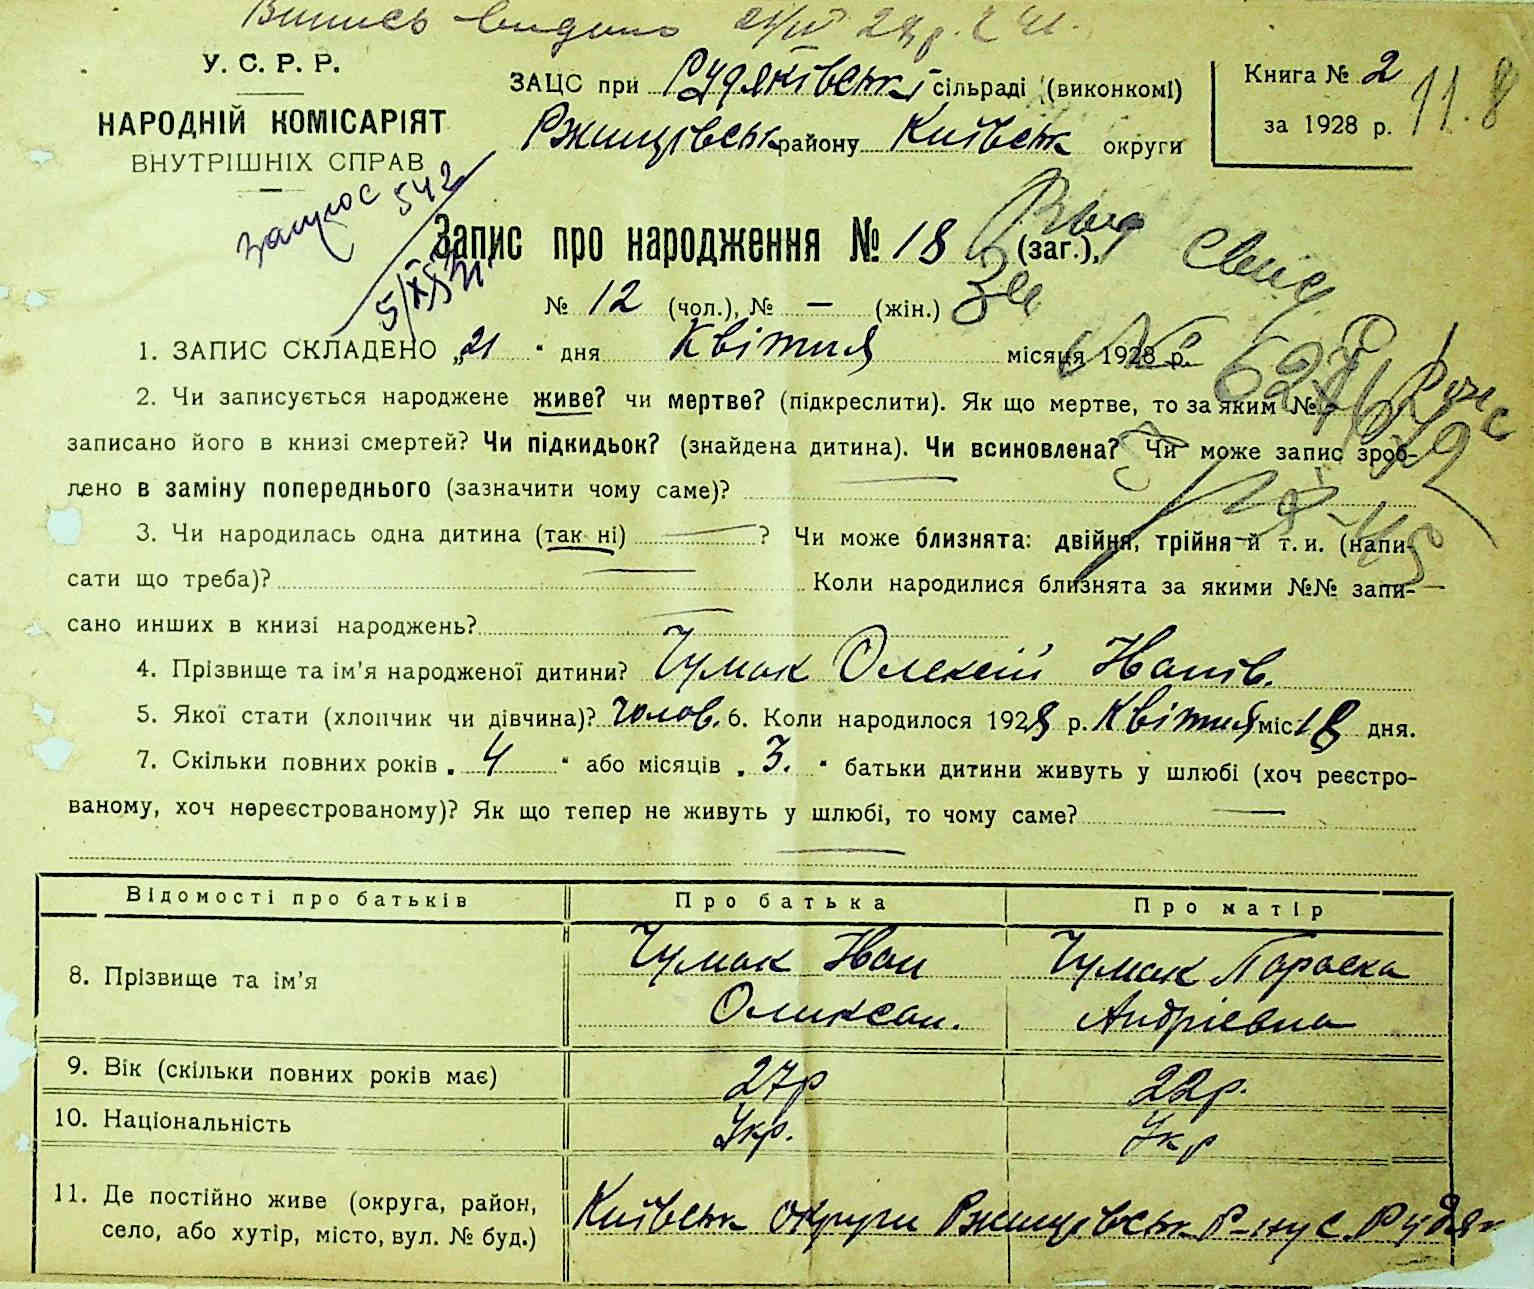 Випись видано
У. С. Р. Р.
НАРОДНІЙ КОМІСАРІЯТ
ВНУТРІШНІХ СПРАВ
ЗАЦС при Рудяківській сільраді (виконкомі)
Ржищівськ району Київськ округи
Книга № 2
за 1928 р.
11.8
542
Запис про народження № 18 (заг.),
№ 12 (чол.), № — (жін.)
1. ЗАПИС СКЛАДЕНО „21 “ дня Квітня місяця 1928 р.
2. Чи записується народжене живе? чи мертве? (підкреслити). Як що мертве, то за яким №
записано його в книзі смертей? Чи підкидьок? (знайдена дитина). Чи всиновлена? Чи може запис зроб-
лено в заміну попереднього (зазначити чому саме)?
3. Чи народилась одна дитина (так ні) ? Чи може близнята: двійня, трійня й т. и. (напи-
сати що треба)? Коли народилися близнята за якими №№ запи-
сано инших в книзі народжень?
4. Прізвище та ім'я народженої дитини? Чумак Олексій Іванів.
5. Якої стати (хлопчик чи дівчина)? Чолов. 6. Коли народилося 1928 р. Квітня міс 18 дня.
7. Скільки повних років „ 4 “ або місяців „ 3. “ батьки дитини живуть у шлюбі (хоч реєстро-
ваному, хоч нереєстрованому)? Як що тепер не живуть у шлюбі, то чому саме?
Відомості про батьків Про батька Про матір
8. Прізвище та ім'я Чумак Іван Чумак Параска
Олексан. Андріевна
9. Вік (скільки повних років має) 27р 22р.
10. Національність Укр. Укр
11. Де постійно живе (округа, район,
село, або хутір, місто, вул. № буд.)
Київськ округи Ржищівськ р-ну с. Рудяк